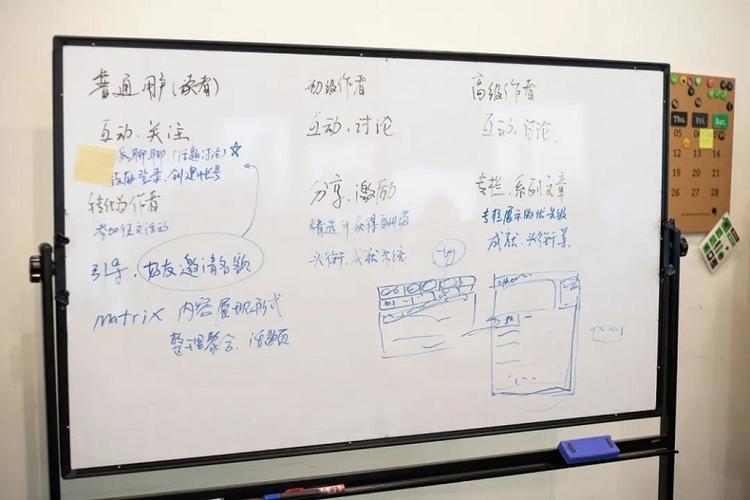 普通用户(读者)
互动、关注
派聊聊(话题讨论)☆
登录、创建账号
转化为作者
参加征文活动
引导、好友邀请名额
Matrix 内容展现形式
整理聚合、话题页
初级作者
互动、讨论
分享、激励
精选可获得
头衔、成就系统
高级作者
互动、讨论
专栏、系列文章
专栏展示的优先级
成就、头衔等
Thu. Fri. Sat.
05
12 13 14
19 20 21
26 27 28